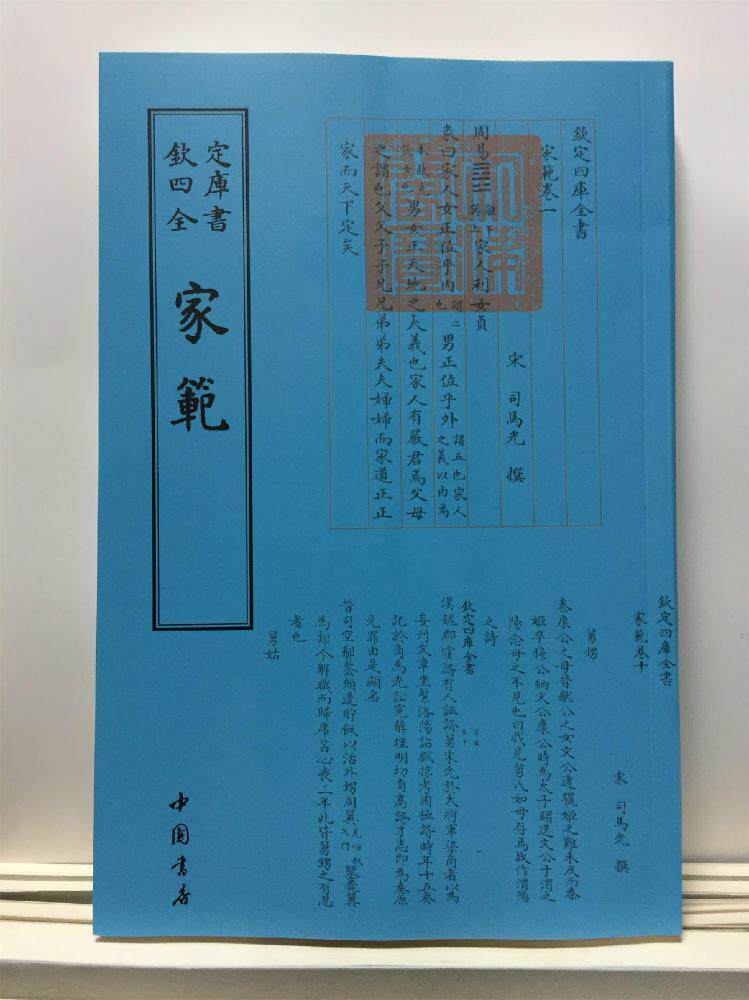 欽定四庫全書
家範
中國書店
欽定四庫全書
家範卷一
宋 司馬光 撰
周易 離下巽上 家人利女貞
彖曰家人女正位乎内 謂二也 男正位乎外 謂五也家人之義以内為本故先説女也 男女正天地之大義也家人有嚴君焉父母
之謂也父父子子兄兄弟弟夫夫婦婦而家道正正
家而天下定矣
欽定四庫全書
家範卷十
宋 司馬光 撰
舅甥
秦康公之母晉獻公之女文公遭驪姬之難未反而秦
姬卒穆公納文公康公時為太子贈送文公于渭之
陽念母之不見也曰我見舅氏如母存焉故作渭陽
之詩
欽定四庫全書
漢魏郡霍諝有人誣諝舅宋光於大將軍梁商者以為
妄刊文章坐繫洛陽詔獄掠考困極諝時年十五奏
記於商為光訟寃辭理明切商高諝才志即為奏原
光罪由是顯名
晉司空郗鑒頰邊貯飯以活外甥周翼 鑒薨翼
為剡令解職而歸席苫心喪三年此皆舅甥之有恩
者也
舅姑